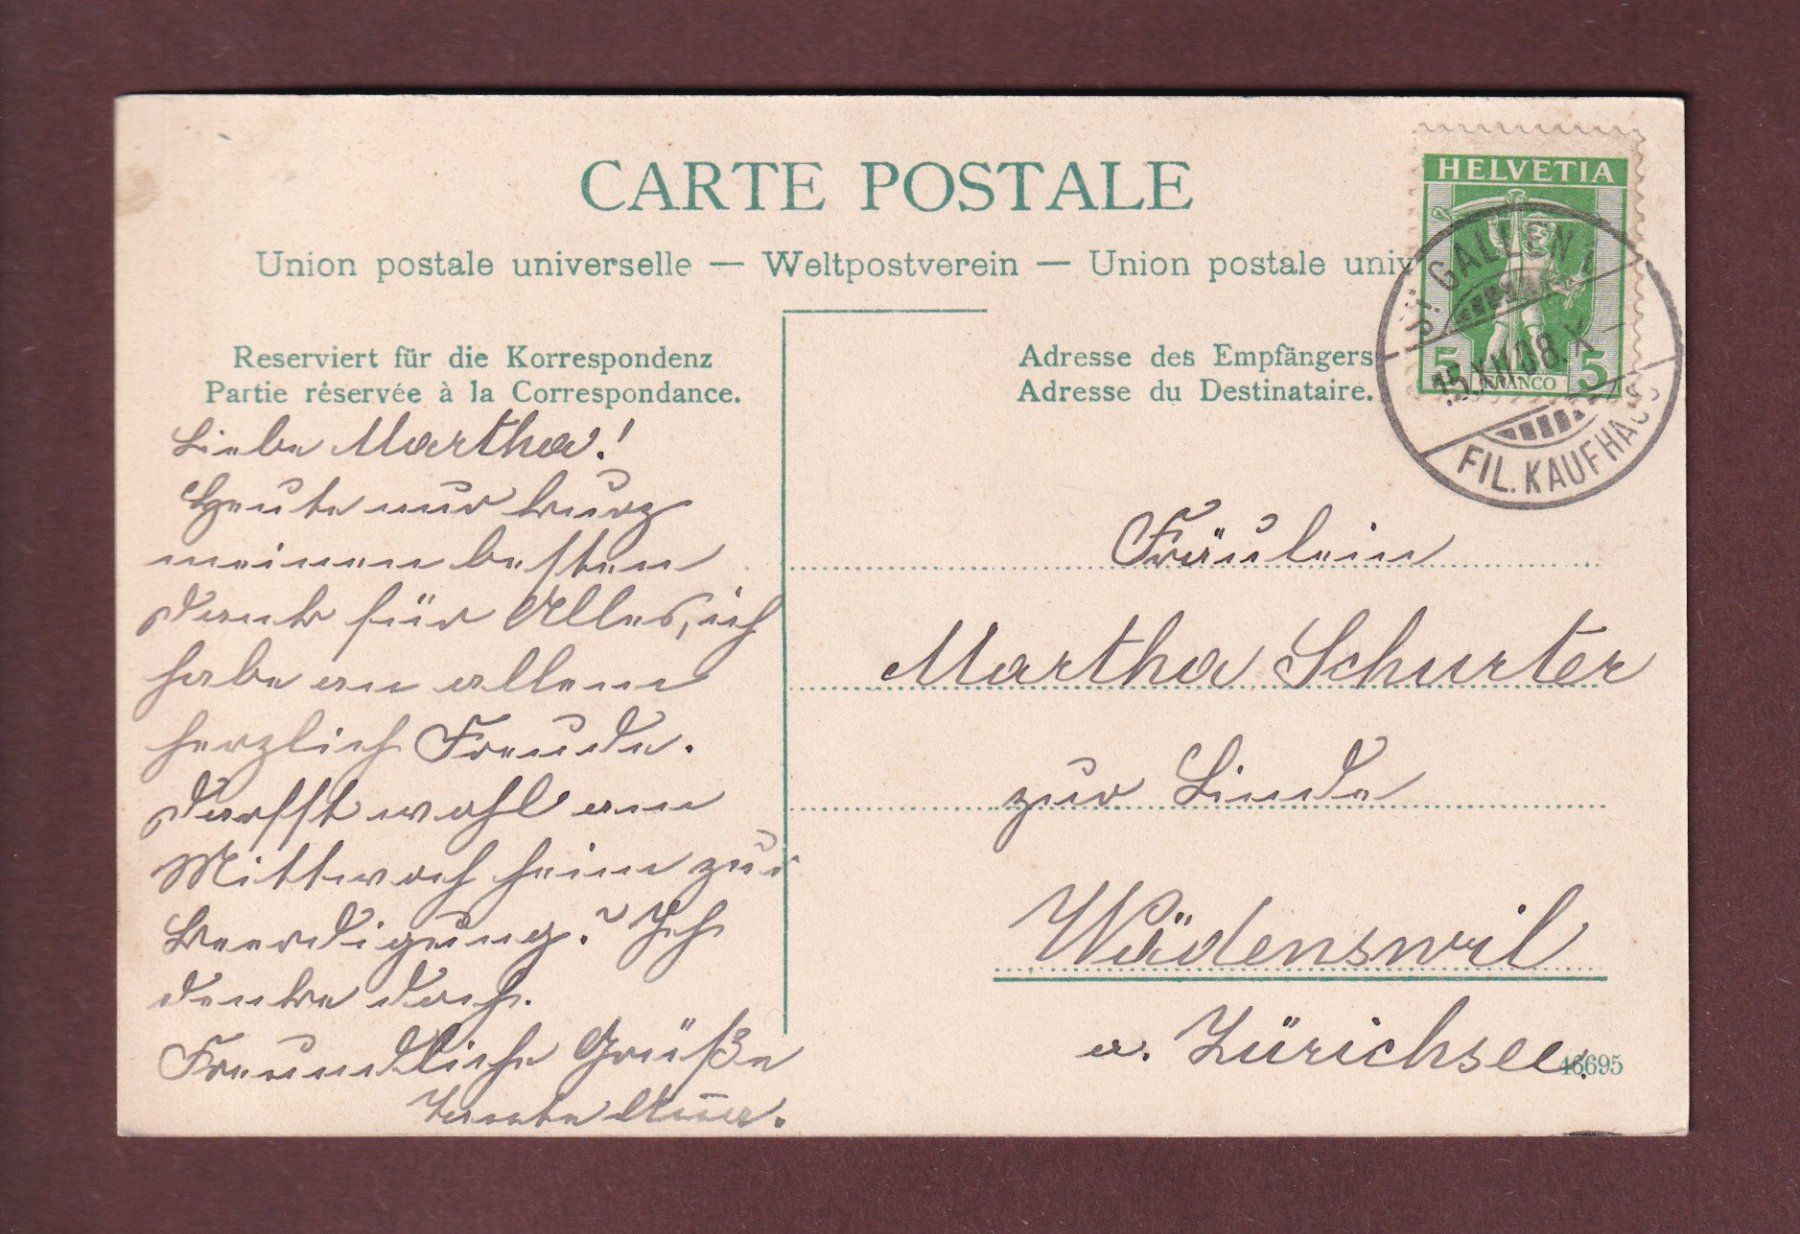 CARTE POSTALE
Union postale universelle — Weltpostverein — Union postale univ
Reserviert für die Korrespondenz
Partie réservée à la Correspondance.
Adresse des Empfängers
Adresse du Destinataire.
HELVETIA
5 FRANCO 5
ST. GALLEN 1
15.XII.08.X–
FIL. KAUFHAUS
Liebe Martha!
Heute nur kurz
meinen besten
Dank für Alles, ich
habe an allem
herzlich Freude.
Darfst wohl am
Mittwoch heim zur
Beerdigung? Ich
denke doch.
Freundliche Grüße
Anna.
Fräulein
Martha Schurter
zur Linde
Wädenswil
a. Zürichsee.
46695